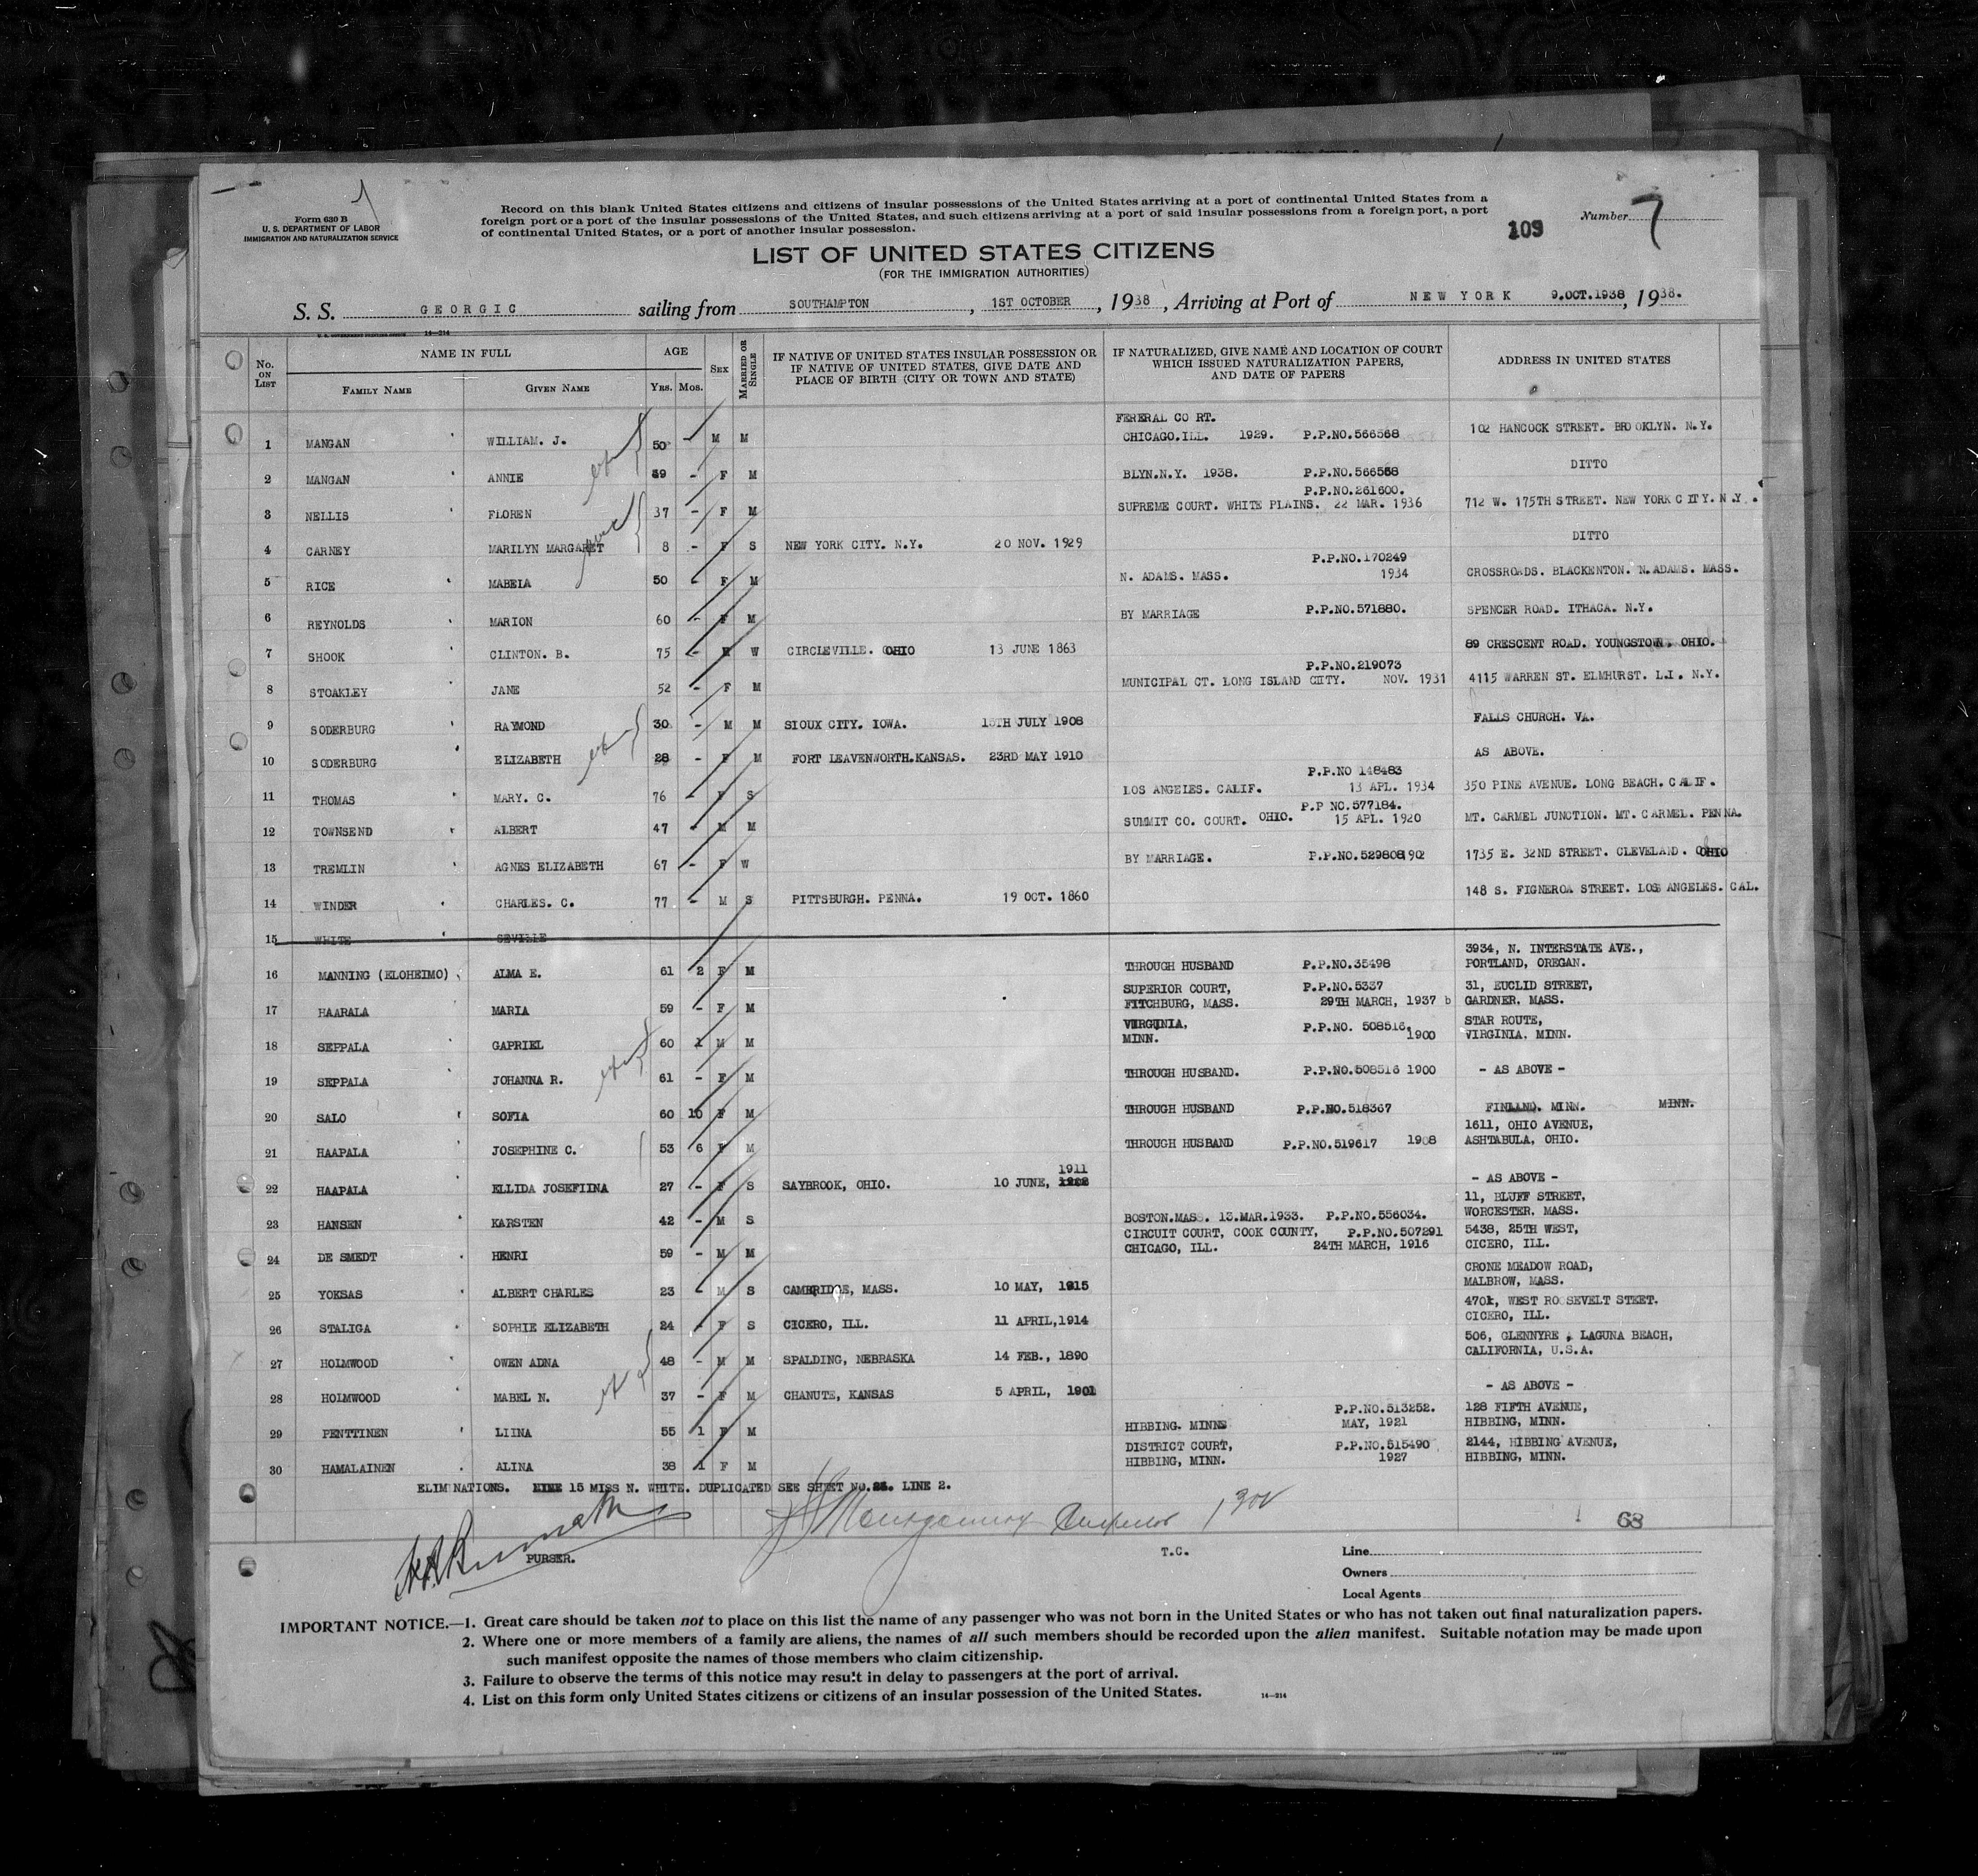 Form 630 B
U. S. DEPARTMENT OF LABOR
IMMIGRATION AND NATURALIZATION SERVICE
Record on this blank United States citizens and citizens of insular possessions of the United States arriving at a port of continental United States from a
foreign port or a port of the insular possessions of the United States, and such citizens arriving at a port of said insular possessions from a foreign port, a port
of continental United States, or a port of another insular possession.
109
Number 7
LIST OF UNITED STATES CITIZENS
(FOR THE IMMIGRATION AUTHORITIES)
S. S. GEORGIC sailing from SOUTHAMPTON, 1ST OCTOBER, 1938, Arriving at Port of NEW YORK 9.OCT.1938, 1938.
U. S. GOVERNMENT PRINTING OFFICE 14—214
No. ON LIST NAME IN FULL FAMILY NAME GIVEN NAME AGE YRS. MOS. SEX MARRIED OR SINGLE
IF NATIVE OF UNITED STATES INSULAR POSSESSION OR IF NATIVE OF UNITED STATES, GIVE DATE AND PLACE OF BIRTH (CITY OR TOWN AND STATE)
IF NATURALIZED, GIVE NAME AND LOCATION OF COURT WHICH ISSUED NATURALIZATION PAPERS, AND DATE OF PAPERS
ADDRESS IN UNITED STATES
1 MANGAN WILLIAM. J. 50 - M M FERERAL CO RT. CHICAGO.ILL. 1929. P.P.NO.566568 102 HANCOCK STREET. BROOKLYN. N.Y.
2 MANGAN ANNIE 49 - F M BLYN.N.Y. 1938. P.P.NO.566568 DITTO
3 NELLIS FLOREN 37 - F M P.P.NO.261600. SUPREME COURT. WHITE PLAINS. 22 MAR. 1936 712 W. 175TH STREET. NEW YORK CITY. N.Y.
4 CARNEY MARILYN MARGARET 8 - F S NEW YORK CITY. N.Y. 20 NOV. 1929 DITTO
5 RICE MABEIA 50 - F M N. ADAMS. MASS. P.P.NO.170249 1934 CROSSROADS. BLACKENTON. N.ADAMS. MASS.
6 REYNOLDS MARION 60 - F M BY MARRIAGE P.P.NO.571880. SPENCER ROAD. ITHACA. N.Y.
7 SHOOK CLINTON. B. 75 - M W CIRCLEVILLE. OHIO 13 JUNE 1863 89 CRESCENT ROAD. YOUNGSTOWN, OHIO.
8 STOAKLEY JANE 52 - F M P.P.NO.219073 MUNICIPAL CT. LONG ISLAND CIITY. NOV. 1931 4115 WARREN ST. ELMHURST. L.I. N.Y.
9 SODERBURG RAYMOND 30 - M M SIOUX CITY. IOWA. JULY 1908 FALLS CHURCH. VA.
10 SODERBURG ELIZABETH 28 - F M FORT LEAVENWORTH.KANSAS. 23RD MAY 1910 AS ABOVE.
11 THOMAS MARY. C. 76 - F S P.P.NO 148483 LOS ANGELES. CALIF. 13 APL. 1934 350 PINE AVENUE. LONG BEACH. CALIF.
12 TOWNSEND ALBERT 47 - M M P.P NO.577184. SUMMIT CO. COURT. OHIO. 15 APL. 1920 MT. CARMEL JUNCTION. MT. CARMEL. PENNA.
13 TREMLIN AGNES ELIZABETH 67 - F W BY MARRIAGE. P.P.NO.529808 1902 1735 E. 32ND STREET. CLEVELAND. OHIO
14 WINDER CHARLES. C. 77 - M S PITTSBURGH. PENNA. 19 OCT. 1860 148 S. FIGNEROA STREET. LOS ANGELES. CAL.
15 WHITE SEVILLE
16 MANNING (ELOHEIMO) ALMA E. 61 2 F M THROUGH HUSBAND P.P.NO.35498 3934, N. INTERSTATE AVE., PORTLAND, OREGAN.
17 HAARALA MARIA 59 - F M SUPERIOR COURT, P.P.NO.5337 FITCHBURG, MASS. 29TH MARCH, 1937 b 31, EUCLID STREET, GARDNER, MASS.
18 SEPPALA GAPRIEL 60 1 M M VIRGINIA, MINN. P.P.NO. 508516, 1900 STAR ROUTE, VIRGINIA. MINN.
19 SEPPALA JOHANNA R. 61 - F M THROUGH HUSBAND. P.P.NO.508516 1900 - AS ABOVE -
20 SALO SOFIA 60 10 F M THROUGH HUSBAND P.P.NO.518367 FINLAND. MINN. MINN.
21 HAAPALA JOSEPHINE C. 53 6 F M THROUGH HUSBAND P.P.NO.519617 1908 1611, OHIO AVENUE, ASHTABULA, OHIO.
22 HAAPALA ELLIDA JOSEFIINA 27 - F S SAYBROOK, OHIO. 10 JUNE, 1911 - AS ABOVE -
23 HANSEN KARSTEN 42 - M S BOSTON.MASS. 13.MAR.1933. P.P.NO.556034. 11, BLUFF STREET, WORCESTER, MASS.
24 DE SMEDT HENRI 59 - M M CIRCUIT COURT, COOK COUNTY, P.P.NO.507291 CHICAGO, ILL. 24TH MARCH, 1916 5438, 25TH WEST, CICERO, ILL.
25 YOKSAS ALBERT CHARLES 23 - M S CAMBRIDGE, MASS. 10 MAY, 1915 CRONE MEADOW ROAD, MALBROW, MASS.
26 STALIGA SOPHIE ELIZABETH 24 - F S CICERO, ILL. 11 APRIL,1914 4701, WEST ROOSEVELT STEET. CICERO, ILL.
27 HOLMWOOD OWEN ADNA 48 - M M SPALDING, NEBRASKA 14 FEB., 1890 506, GLENNYRE, LAGUNA BEACH, CALIFORNIA, U.S.A.
28 HOLMWOOD MABEL N. 37 - F M CHANUTE, KANSAS 5 APRIL, 1901 - AS ABOVE -
29 PENTTINEN LIINA 55 1 F M HIBBING. MINN P.P.NO.513252. MAY, 1921 128 FIFTH AVENUE, HIBBING, MINN.
30 HAMALAINEN ALINA 38 1 F M DISTRICT COURT, P.P.NO.515490 HIBBING, MINN. 1927 2144, HIBBING AVENUE, HIBBING, MINN.
ELIMINATIONS. LINE 15 MISS N. WHITE. DUPLICATED SEE SHEET NO. LINE 2.
Montgomery
68
PURSER.
T.C.
Line
Owners
Local Agents
IMPORTANT NOTICE.—1. Great care should be taken not to place on this list the name of any passenger who was not born in the United States or who has not taken out final naturalization papers.
2. Where one or more members of a family are aliens, the names of all such members should be recorded upon the alien manifest. Suitable notation may be made upon
such manifest opposite the names of those members who claim citizenship.
3. Failure to observe the terms of this notice may result in delay to passengers at the port of arrival.
4. List on this form only United States citizens or citizens of an insular possession of the United States.
14—214